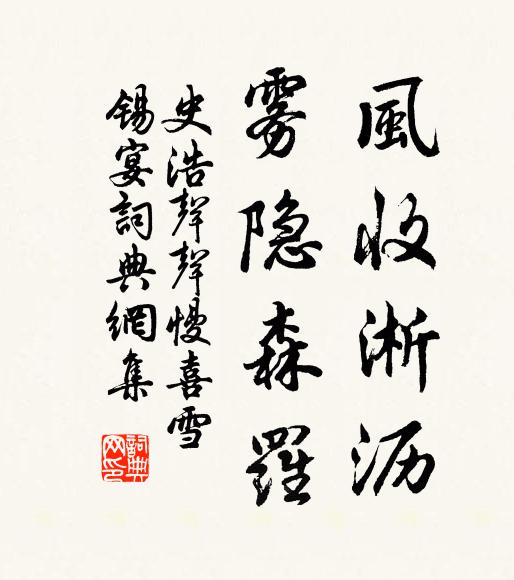 風收淅沥
雾隐森羅
史浩聲聲慢喜雪
錫宴詞典網集
詞典网印